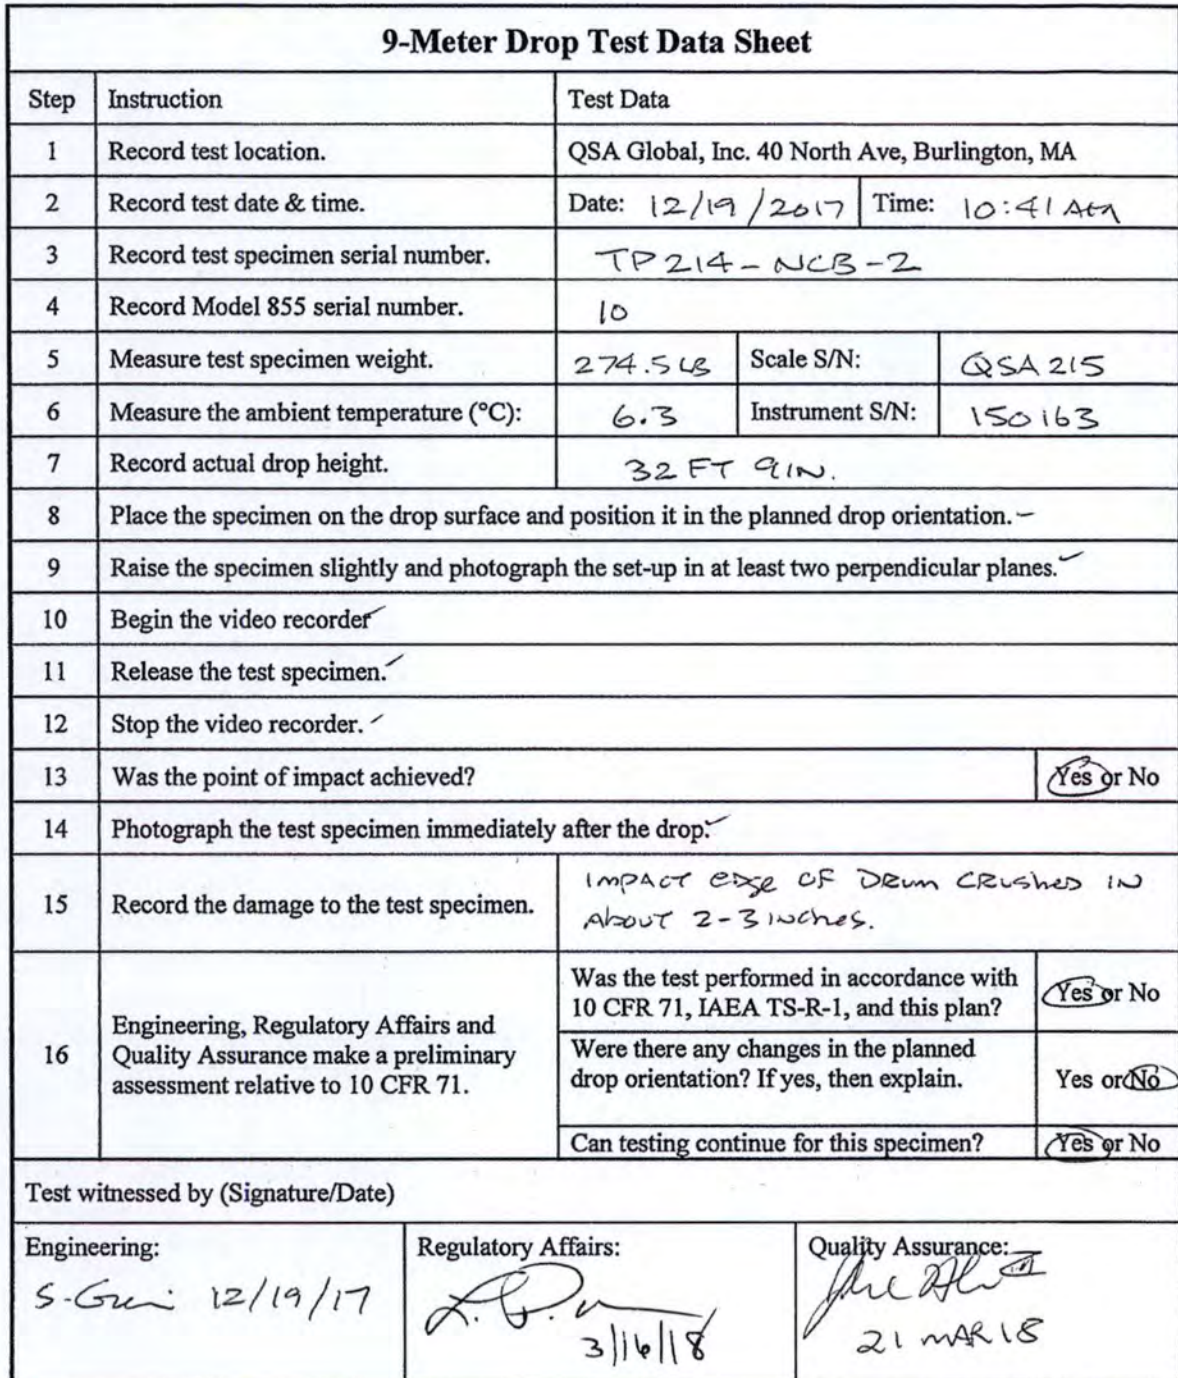 9-Meter Drop Test Data Sheet
Step Instruction Test Data
1 Record test location. QSA Global, Inc. 40 North Ave, Burlington, MA
2 Record test date & time. Date: 12/19/2017 Time: 10:41 AM
3 Record test specimen serial number. TP214-NCB-2
4 Record Model 855 serial number. 10
5 Measure test specimen weight. 274.5 LB Scale S/N: QSA215
6 Measure the ambient temperature (°C): 6.3 Instrument S/N: 150163
7 Record actual drop height. 32 FT 9IN.
8 Place the specimen on the drop surface and position it in the planned drop orientation.
9 Raise the specimen slightly and photograph the set-up in at least two perpendicular planes.
10 Begin the video recorder
11 Release the test specimen.
12 Stop the video recorder.
13 Was the point of impact achieved? Yes or No
14 Photograph the test specimen immediately after the drop.
15 Record the damage to the test specimen. IMPACT edge OF DRum CRushed IN
About 2-3 inches.
16 Engineering, Regulatory Affairs and
Quality Assurance make a preliminary
assessment relative to 10 CFR 71.
Was the test performed in accordance with
10 CFR 71, IAEA TS-R-1, and this plan? Yes or No
Were there any changes in the planned
drop orientation? If yes, then explain. Yes or No
Can testing continue for this specimen? Yes or No
Test witnessed by (Signature/Date)
Engineering: Regulatory Affairs: Quality Assurance:
12/19/17
3/16/18
21 MAR 18